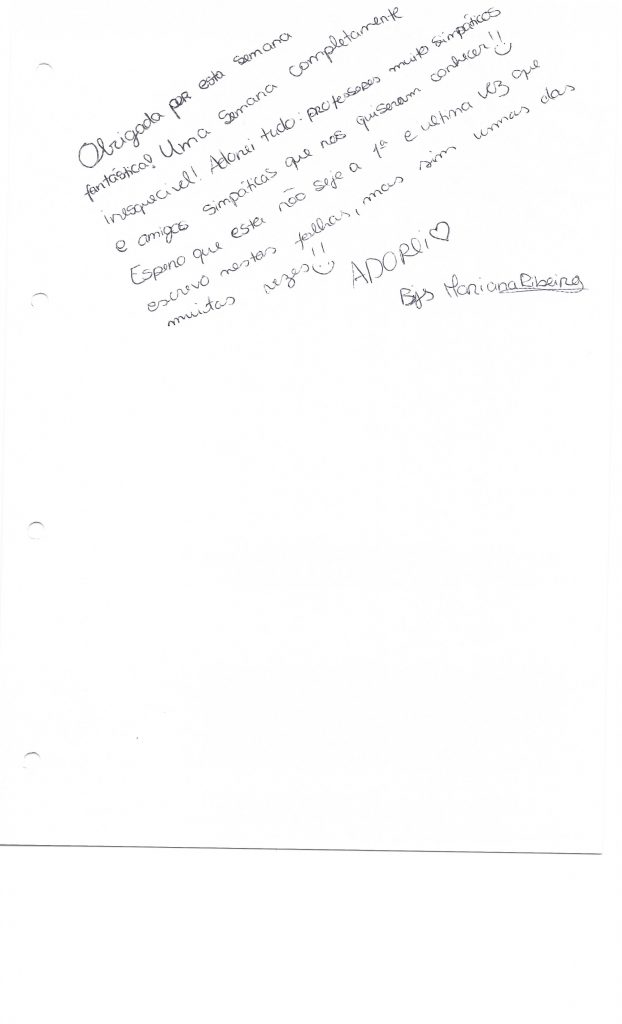 Obrigada por esta semana
fantástica! Uma semana completamente
inesquecível! Adorei tudo: professores muito simpáticos
e amigos simpáticos que nos quiseram conhecer!!
Espero que esta não seja a 1ª e ultima vez que
escrevo nestas folhas, mas sim umas das
muitas vezes!!
ADOREi ♡
Bjs Mariana Ribeiro